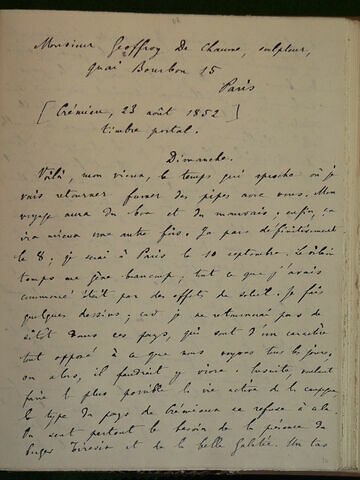 Monsieur Geoffroy De Chaume, sculpteur,
quai Bourbon 15
Paris
[Crémieu, 23 août 1852]
timbre postal.
Dimanche.
Voilà, mon vieux, le temps qui approche où je
vais retourner fumer des pipes avec vous. Mon
voyage aura du bon et du mauvais; enfin, ça
ira mieux une autre fois. Je pars définitivement
le 8; je serai à Paris le 10 septembre. Le
temps me gêne beaucoup; tout ce que j'avais
commencé était par des effets de soleil. Je fais
quelques dessins; car je ne retournerai pas de
sitôt dans ces pays, qui sont d'un caractère
tout opposé à ce que nous voyons tous les jours,
ou alors, il faudrait y vivre. Ensuite, voulant
faire le plus possible la vie active de la campagne
le type du pays de Crémieux se refuse à cela.
On sent partout le besoin de la présence du
Tirésias et de la belle Galatée. Un tas